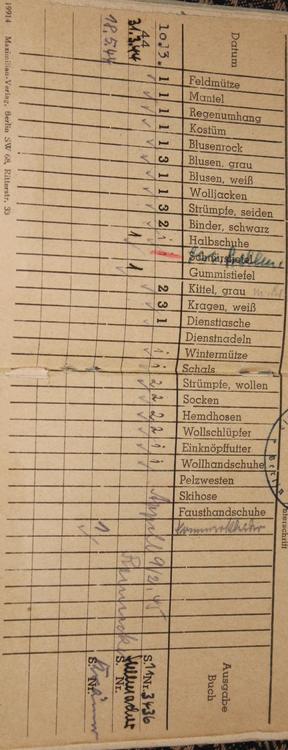 Datum
Feldmütze
Mantel
Regenumhang
Kostüm
Blusenrock
Blusen, grau
Blusen, weiß
Wolljacken
Strümpfe, seiden
Binder, schwarz
Halbschuhe
Gummistiefel
Kittel, grau
Kragen, weiß
Diensttasche
Dienstnadeln
Wintermütze
Schals
Strümpfe, wollen
Socken
Hemdhosen
Wollschlüpfer
Einknöpffutter
Wollhandschuhe
Pelzwesten
Skihose
Fausthandschuhe
Ausgabe Buch
10.3. 1 1 1 1 1 3 1 1 3 2 1 2 3 1
S. 11 Nr. 3436
44
31.3.44
1 1 2 2 2 2 1 1
Appell 9/2.45
S. Nr.
18.5.44
1 1
S. Nr.
19914 Maximilian-Verlag, Berlin SW 68, Ritterstr. 33